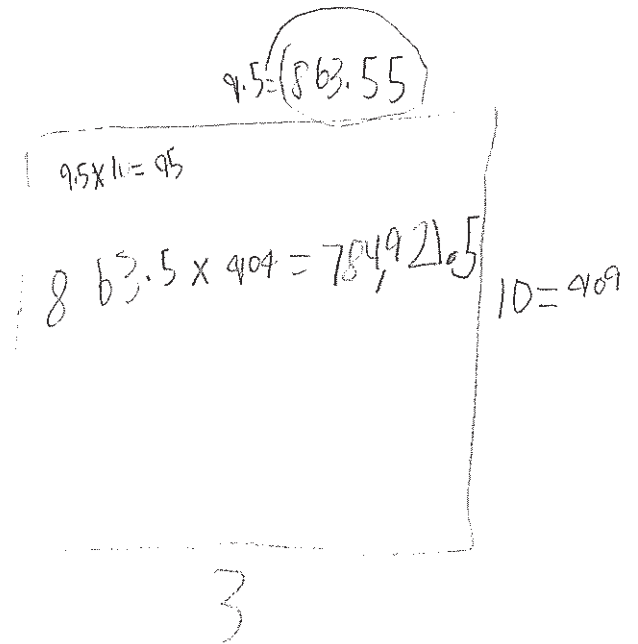 9.5=863.55
9.5x10=95
863.5 x 909 = 784,921.5
10=909
3